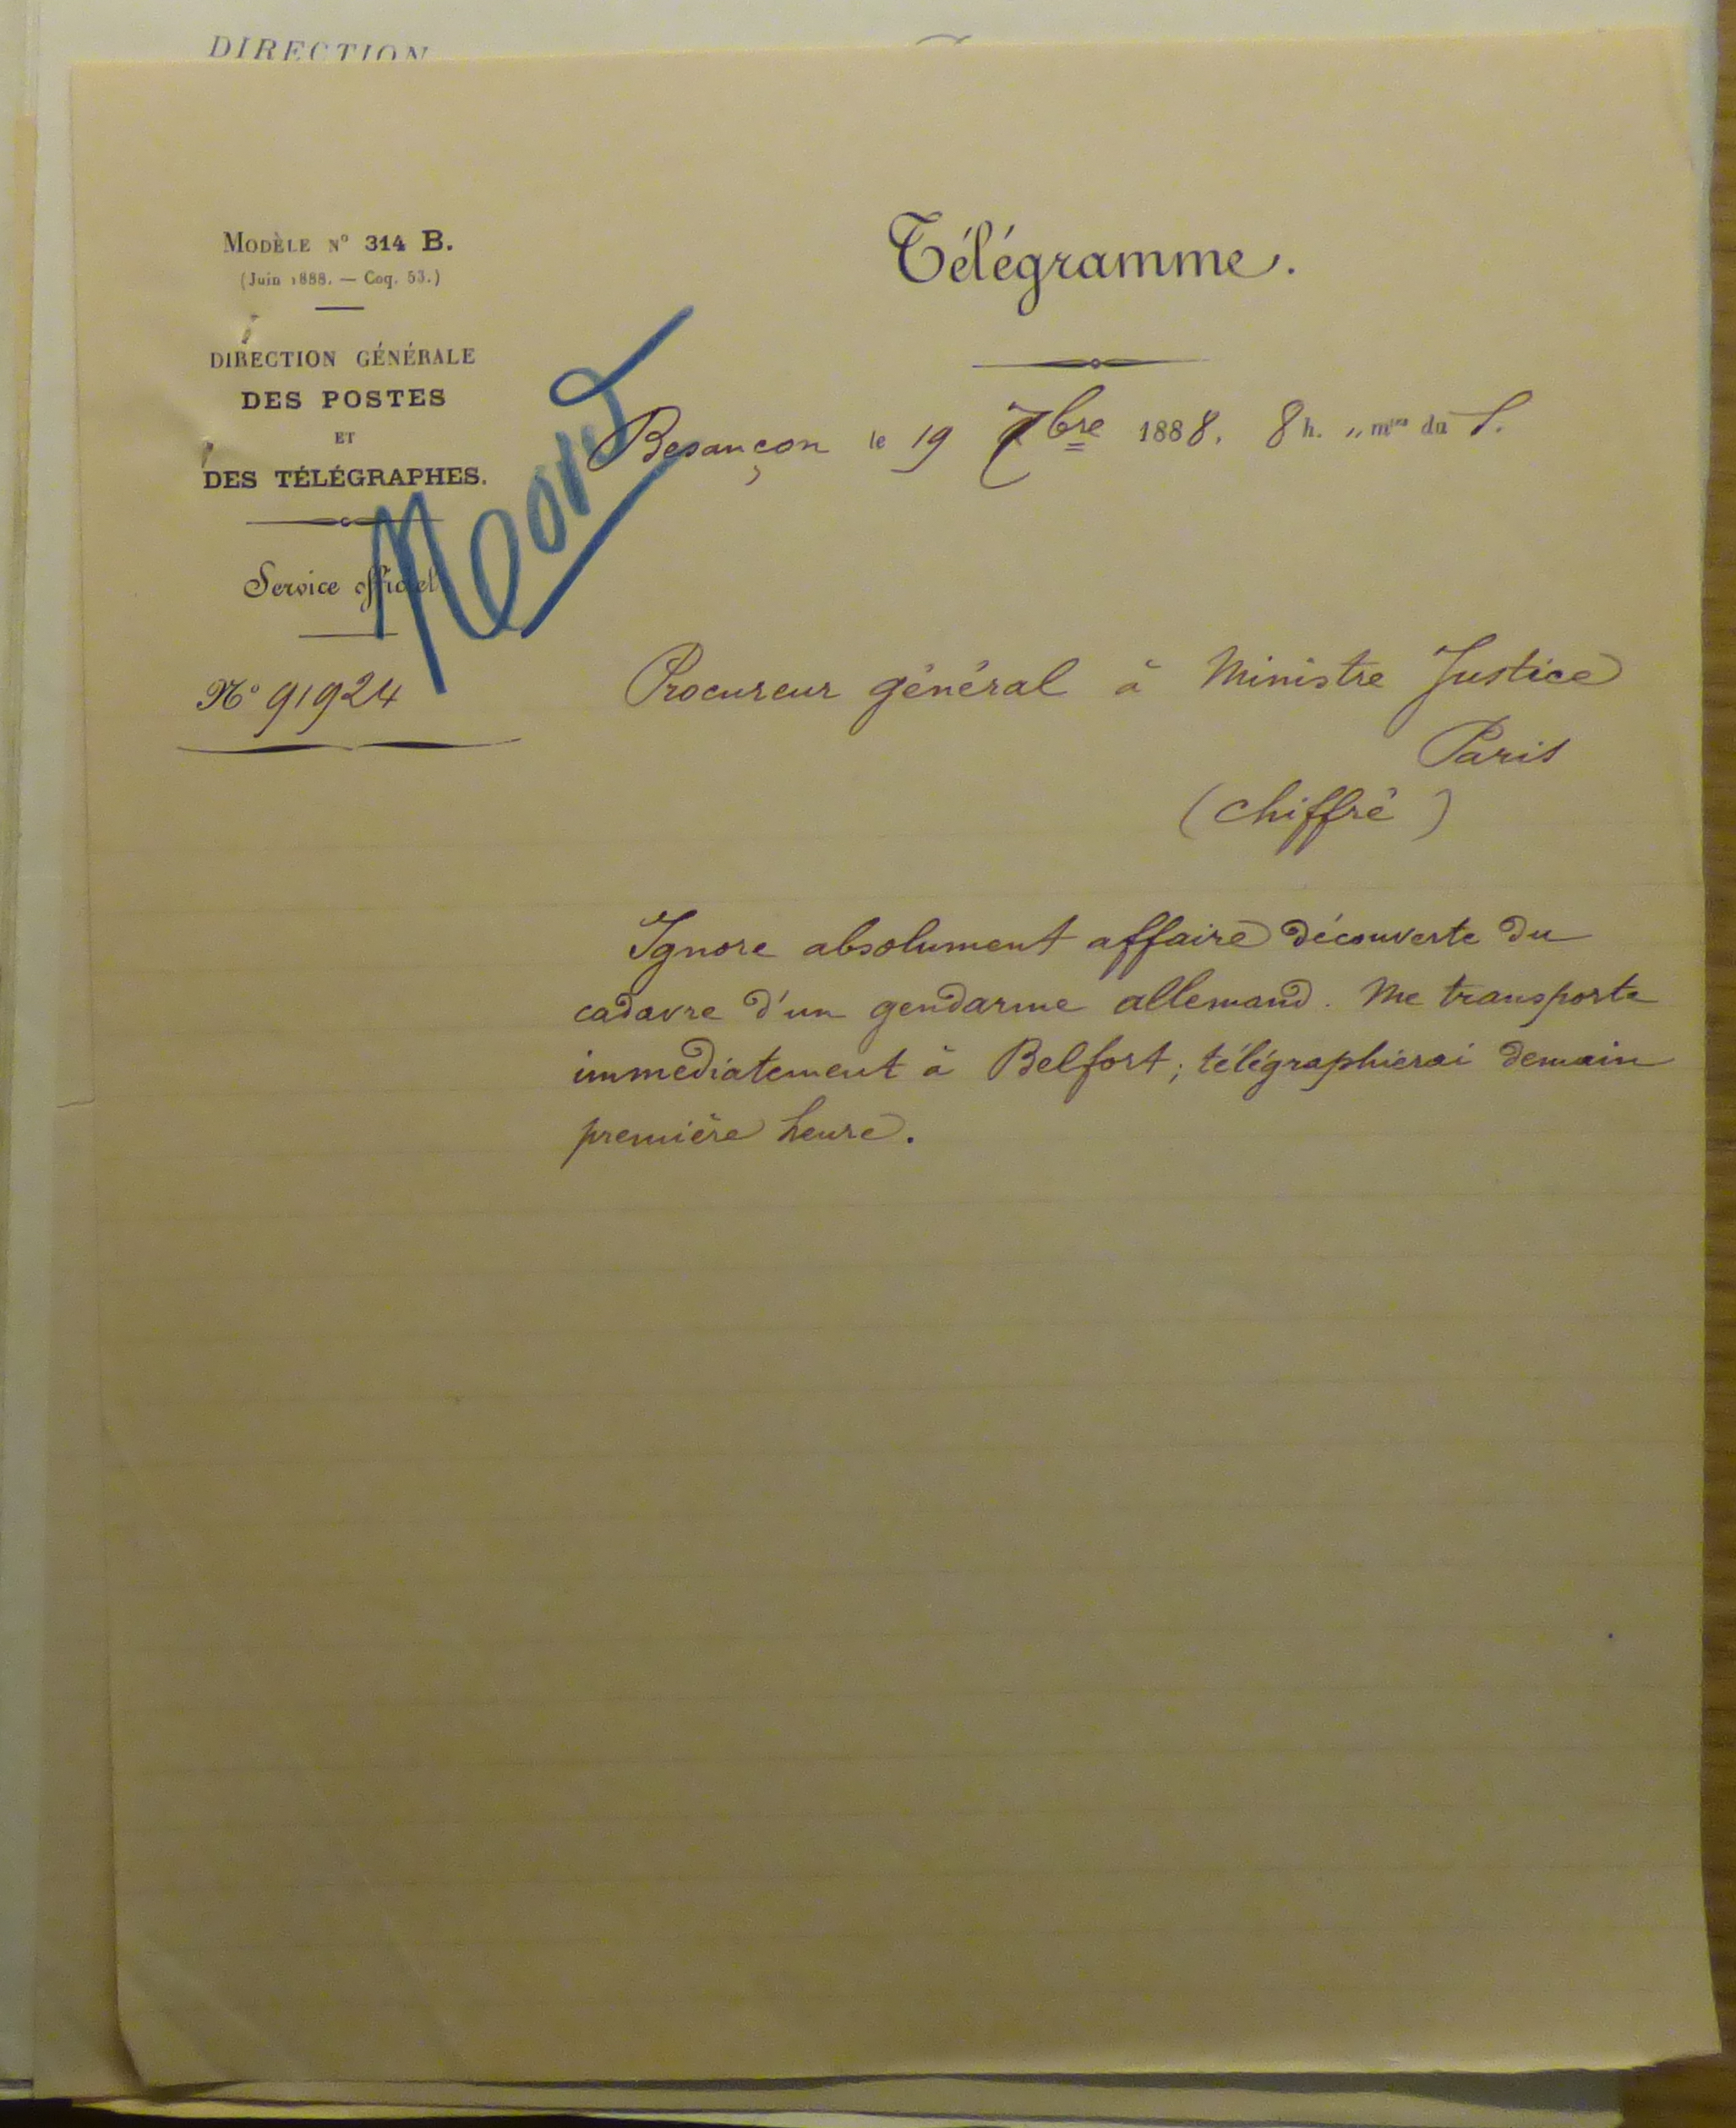 DIRECTION
MODÈLE N° 314 B.
(Juin 1888. — Coq. 53.)
DIRECTION GÉNÉRALE
DES POSTES
ET
DES TÉLÉGRAPHES.
Service officiel
N° 91924
Télégramme.
Besançon le 19 7bre 1888, 8 h. „ mes du S.
Procureur général à Ministre Justice
Paris
(chiffré)
Ignore absolument affaire découverte du
cadavre d'un gendarme allemand. Me transporte
immédiatement à Belfort; télégraphierai demain
première heure.